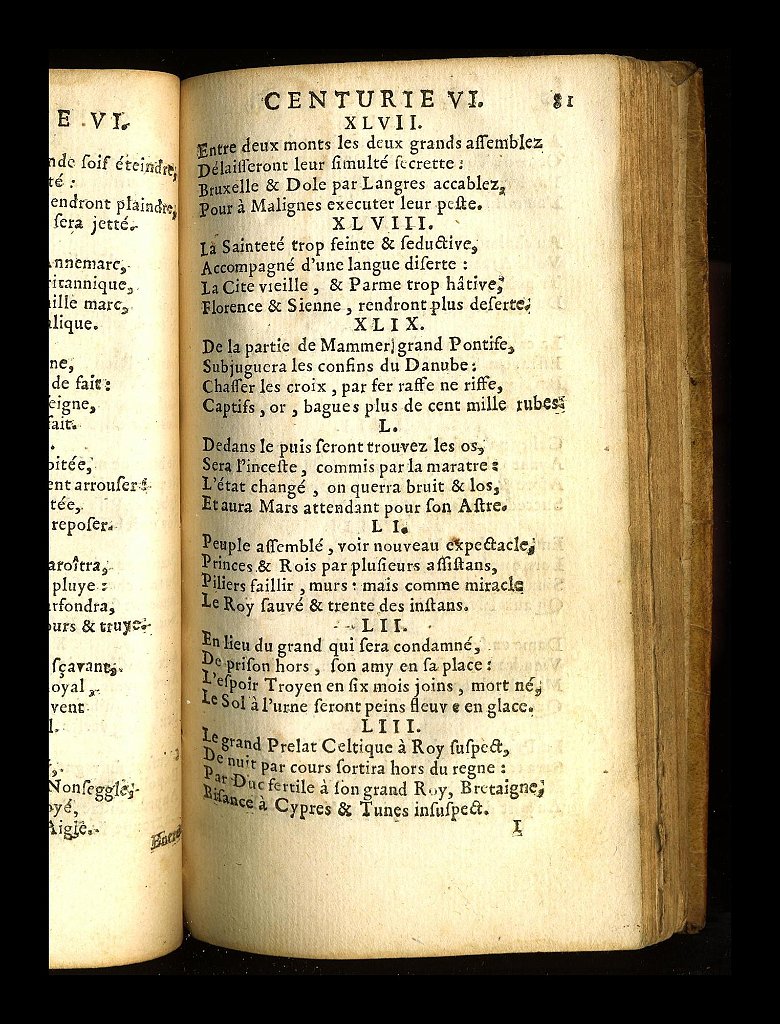 E VI.
nde soif éteindre,
té :
endront plaindre,
sera jetté.
Annemarc,
ritannique,
aille marc,
alique.
ne,
de fait :
eigne,
fait.
pitée,
ent arrouser :
tée,
reposer.
aroîtra,
pluye :
rfondra,
ours & truye.
sçavant,
oyal,
vent
l.
Nonseggle,
oyé,
Aigle.
Entre
CENTURIE VI. 81
XLVII.
Entre deux monts les deux grands aſſemblez
Délaiſſeront leur ſimulté ſecrette :
Bruxelle & Dole par Langres accablez,
Pour à Malignes executer leur peſte.
XLVIII.
La Sainteté trop feinte & ſeductive,
Accompagné d'une langue diſerte :
La Cite vieille , & Parme trop hâtive,
Florence & Sienne , rendront plus deſerte.
XLIX.
De la partie de Mammer grand Pontife,
Subjuguera les confins du Danube :
Chaſſer les croix , par fer raffe ne riffe,
Captifs , or , bagues plus de cent mille rubes.
L.
Dedans le puis ſeront trouvez les os,
Sera l'inceſte , commis par la maratre :
L'état changé , on querra bruit & los,
Et aura Mars attendant pour ſon Aſtre.
LI.
Peuple aſſemblé , voir nouveau expectacle,
Princes & Rois par pluſieurs aſſiſtans,
Piliers faillir , murs : mais comme miracle
Le Roy ſauvé & trente des inſtans.
LII.
En lieu du grand qui ſera condamné,
De priſon hors , ſon amy en ſa place :
L'eſpoir Troyen en ſix mois joins , mort né,
Le Sol à l'urne ſeront peins fleuve en glace.
LIII.
Le grand Prelat Celtique à Roy ſuſpect,
De nuit par cours ſortira hors du regne :
Par Duc fertile à ſon grand Roy, Bretaigne,
Biſance à Cypres & Tunes inſuſpect.
I